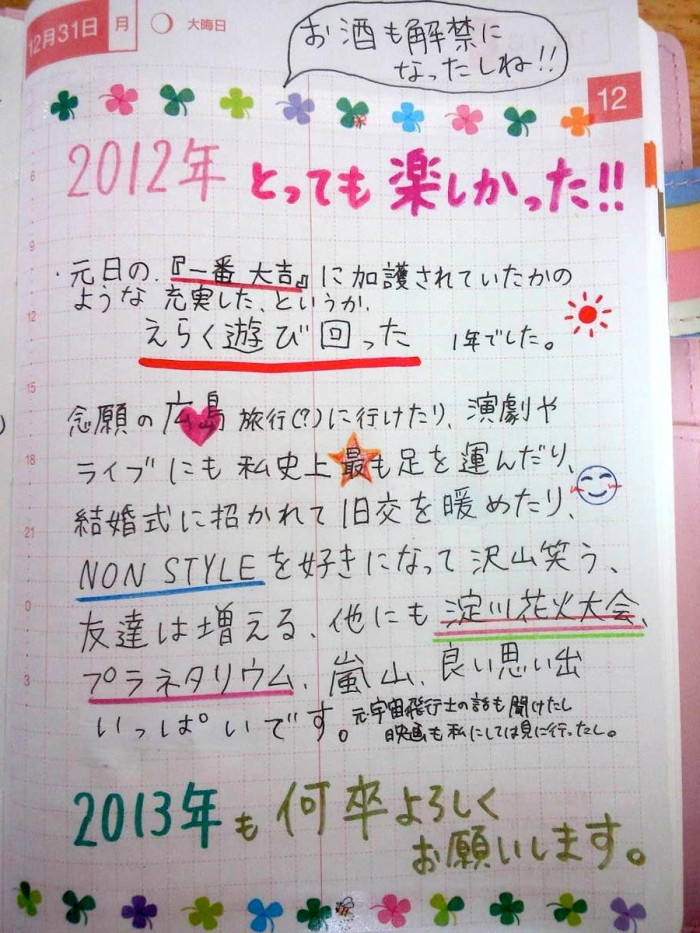 12月31日 月 大晦日
お酒も解禁に
なったしね!!
12
2012年 とっても 楽しかった!!
・元日の『一番 大吉』に加護されていたかの
ような 充実した、というか、
えらく遊び回った 1年でした。
念願の広島 旅行(?)に行けたり、演劇や
ライブにも 私史上 最も足を運んだり、
結婚式に招かれて旧交を暖めたり、
NON STYLEを好きになって沢山笑う、
友達は増える、他にも 淀川花火大会、
プラネタリウム、嵐山、良い思い出
いっぱいです。元宇宙飛行士の話も聞けたし
映画も私にしては見に行ったし。
2013年も 何卒よろしく
お願いします。
6
9
12
15
18
21
0
3